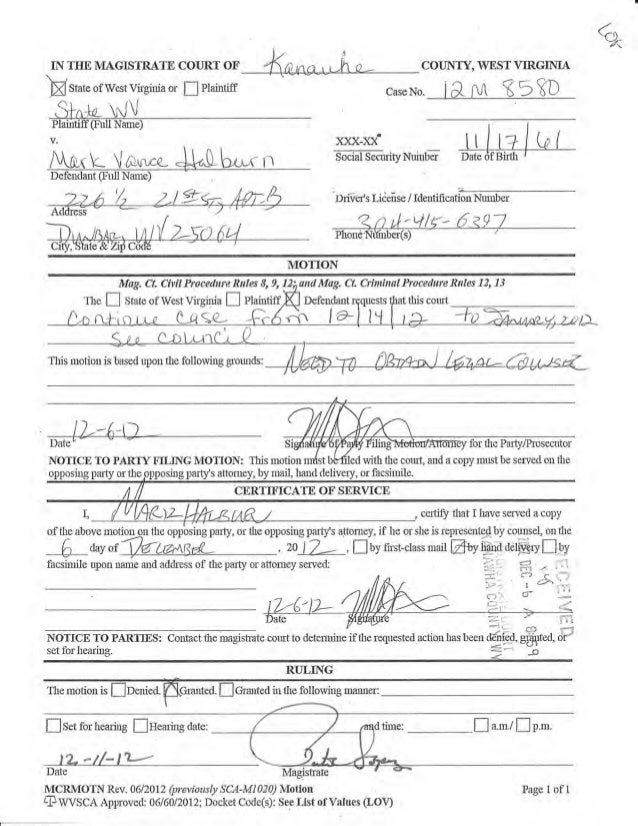 IN THE MAGISTRATE COURT OF Kanauhe COUNTY, WEST VIRGINIA
State of West Virginia or Plaintiff
Case No. 12M 8580
State WV
Plaintiff (Full Name)
v.
XXX-XX
11/17/61
Mark Vance Halburn
Social Security Number Date of Birth
Defendant (Full Name)
226 1/2 21st St, APT-B
Address
Driver's License / Identification Number
Dunbar, WV 25064
304-415-6397
City, State & Zip Code
Phone Number(s)
MOTION
Mag. Ct. Civil Procedure Rules 8, 9, 12; and Mag. Ct. Criminal Procedure Rules 12, 13
The State of West Virginia Plaintiff Defendant requests that this court
Continue Case from 12/14/12 to January, 2012
See council
This motion is based upon the following grounds: NEED TO OBTAIN LEGAL COUNSEL
12-6-12
Date Signature of Party Filing Motion/Attorney for the Party/Prosecutor
NOTICE TO PARTY FILING MOTION: This motion must be filed with the court, and a copy must be served on the
opposing party or the opposing party's attorney, by mail, hand delivery, or facsimile.
CERTIFICATE OF SERVICE
I, MARK HALBURN, certify that I have served a copy
of the above motion on the opposing party, or the opposing party's attorney, if he or she is represented by counsel, on the
6 day of DECEMBER, 2012, by first-class mail by hand delivery by
facsimile upon name and address of the party or attorney served:
RECEIVED
2012 DEC -6 A 8:59
KANAWHA COUNTY WV
12-6-12
Date Signature
NOTICE TO PARTIES: Contact the magistrate court to determine if the requested action has been denied, granted, or
set for hearing.
RULING
The motion is Denied. Granted. Granted in the following manner:
Set for hearing Hearing date: and time: a.m./ p.m.
12-11-12
Date Magistrate
MCRMOTN Rev. 06/2012 (previously SCA-M1020) Motion Page 1 of 1
WVSCA Approved: 06/60/2012; Docket Code(s): See List of Values (LOV)